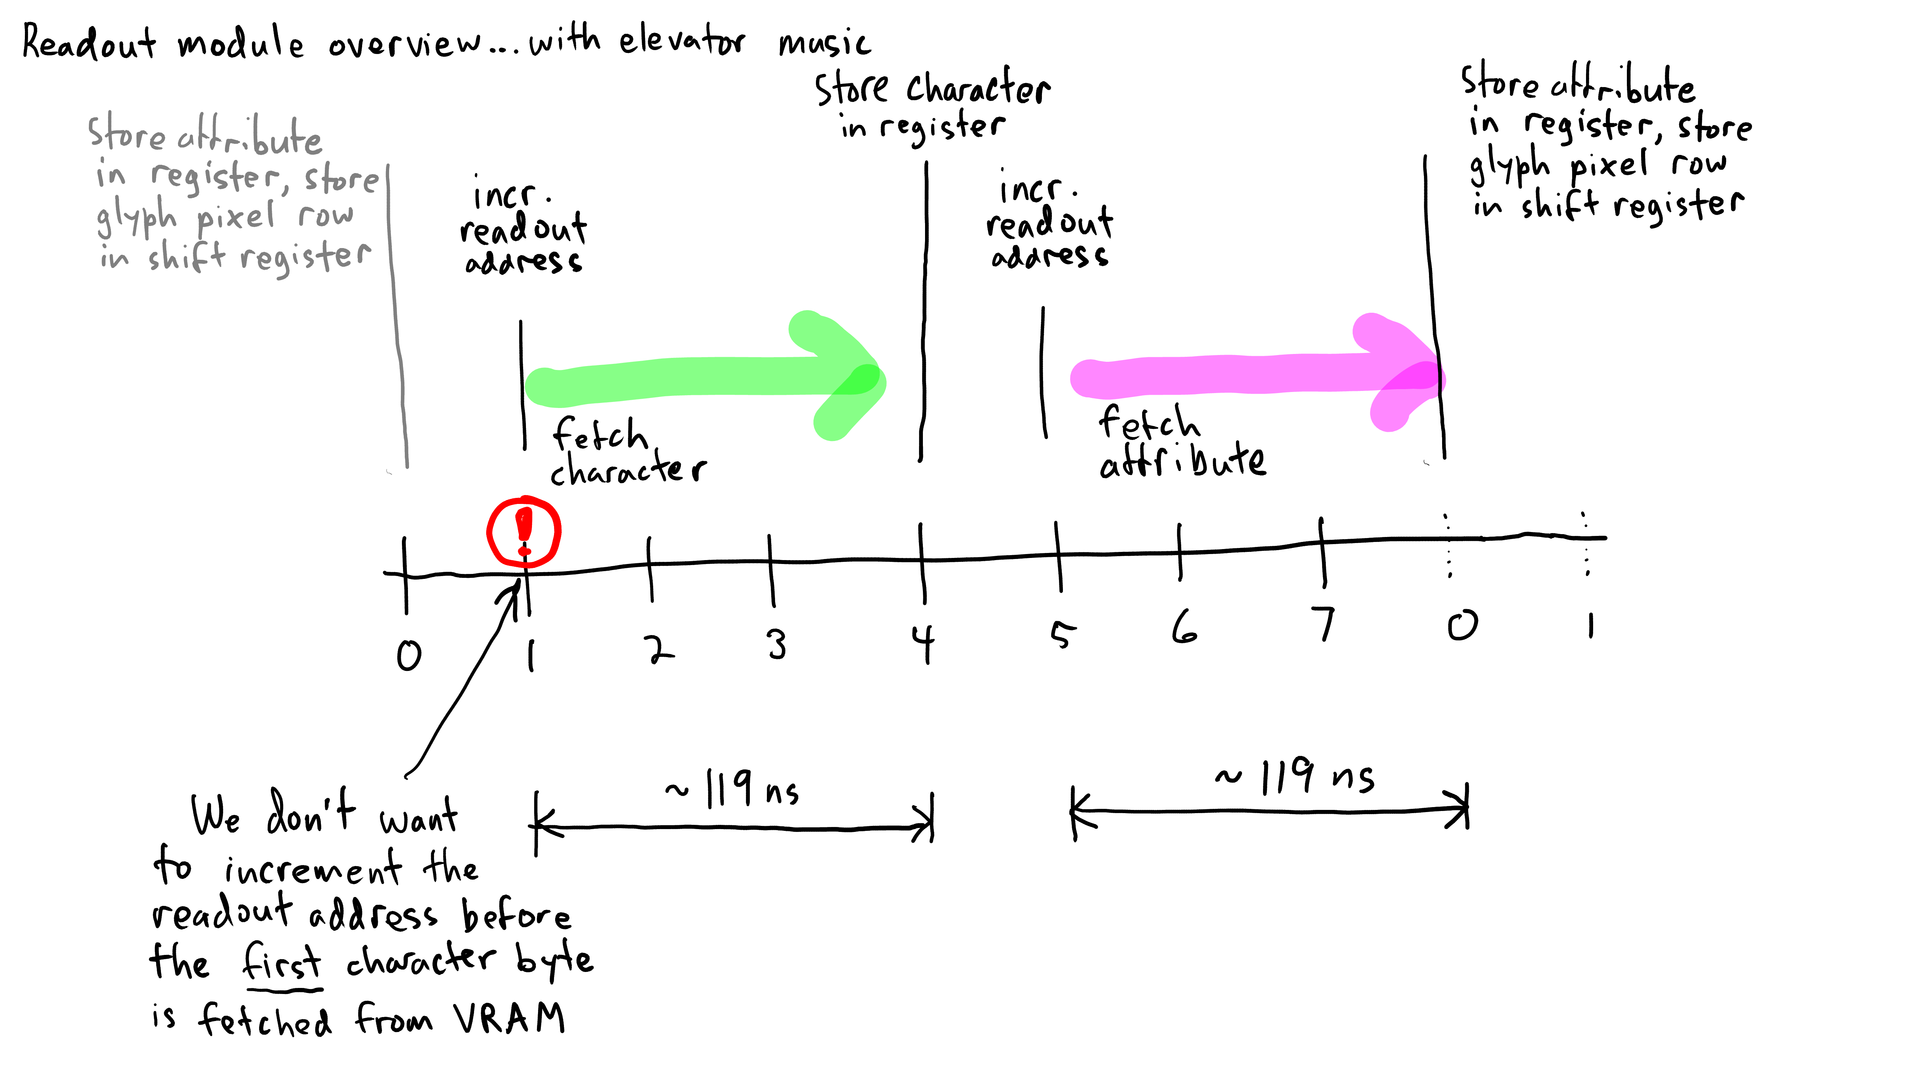 Readout module overview... with elevator music
Store attribute
in register, store
glyph pixel row
in shift register
incr.
readout
address
Store character
in register
incr.
readout
address
Store attribute
in register, store
glyph pixel row
in shift register
fetch
character
fetch
attribute
!
0 1 2 3 4 5 6 7 0 1
~119 ns
~119 ns
We don't want
to increment the
readout address before
the first character byte
is fetched from VRAM